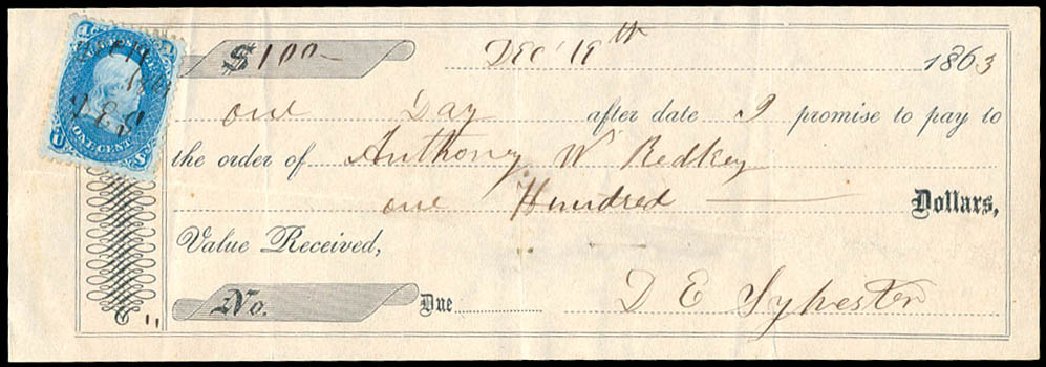 $100- Dec 19th 1863
one Day after date I promise to pay to
the order of Anthony W Redkey
one Hundred Dollars,
Value Received,
No. Due D E Sylvester
ONE CENT